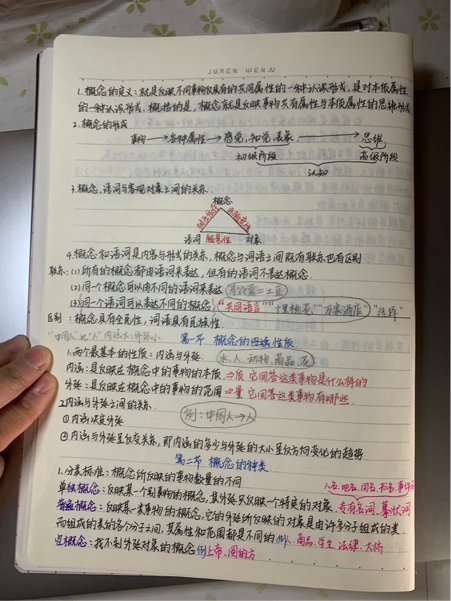 JUREN WENJU
1. 概念的定义：就是反映不同事物所具有的共同属性的一种认识形式，是对本质属性
的一种认识形式，概括的是，概念就是反映事物共有属性与本质属性的思维形式
2. 概念的形成
事物→各种属性→感觉，知觉，表象→思维
初级阶段 高级阶段
认知
3. 概念、语词与客观对象之间的关系
概念
语词 对象
4. 概念和语词是内容与形式的关系，概念与词语之间既有联系也有区别
联系：(1) 所有的概念都由语词来表达，但有的语词不表达概念
(2) 同一个概念可以由不同的语词来表达 土豆
(3) 同一个语词可以表达不同的概念："共同语言" "十里桃花" "万家酒店"
区别：概念具有全人类性，词语具有民族性
第一节 概念的逻辑性质
1. 两个最基本的性质：内涵与外延 (水、人、动物、商品、花)
内涵：是反映在概念中的事物的本质 ⇒质 它回答这类事物是什么样的
外延：是反映在概念中的事物的范围 ⇒量 它回答这类事物有哪些
2. 内涵与外延之间的关系 (例：中国人→人)
① 内涵决定外延
② 内涵与外延呈反变关系，即内涵的多少与外延的大小呈反方向变化的趋势
第二节 概念的种类
1. 分类标准：概念所反映的事物数量的不同
人名、地名、国名、书名、事件
单独概念：反映某一个别事物的概念，其外延只反映一个特定的对象。专有名词、摹状词
普遍概念：反映某一类事物的概念，它的外延所反映的对象是由许多分子组成的类
而组成的类的各个分子之间，其属性和范围都是不同的 例人、商品、学生、法律、大桥
空概念：找不到外延对象的概念 例上帝、圆的方